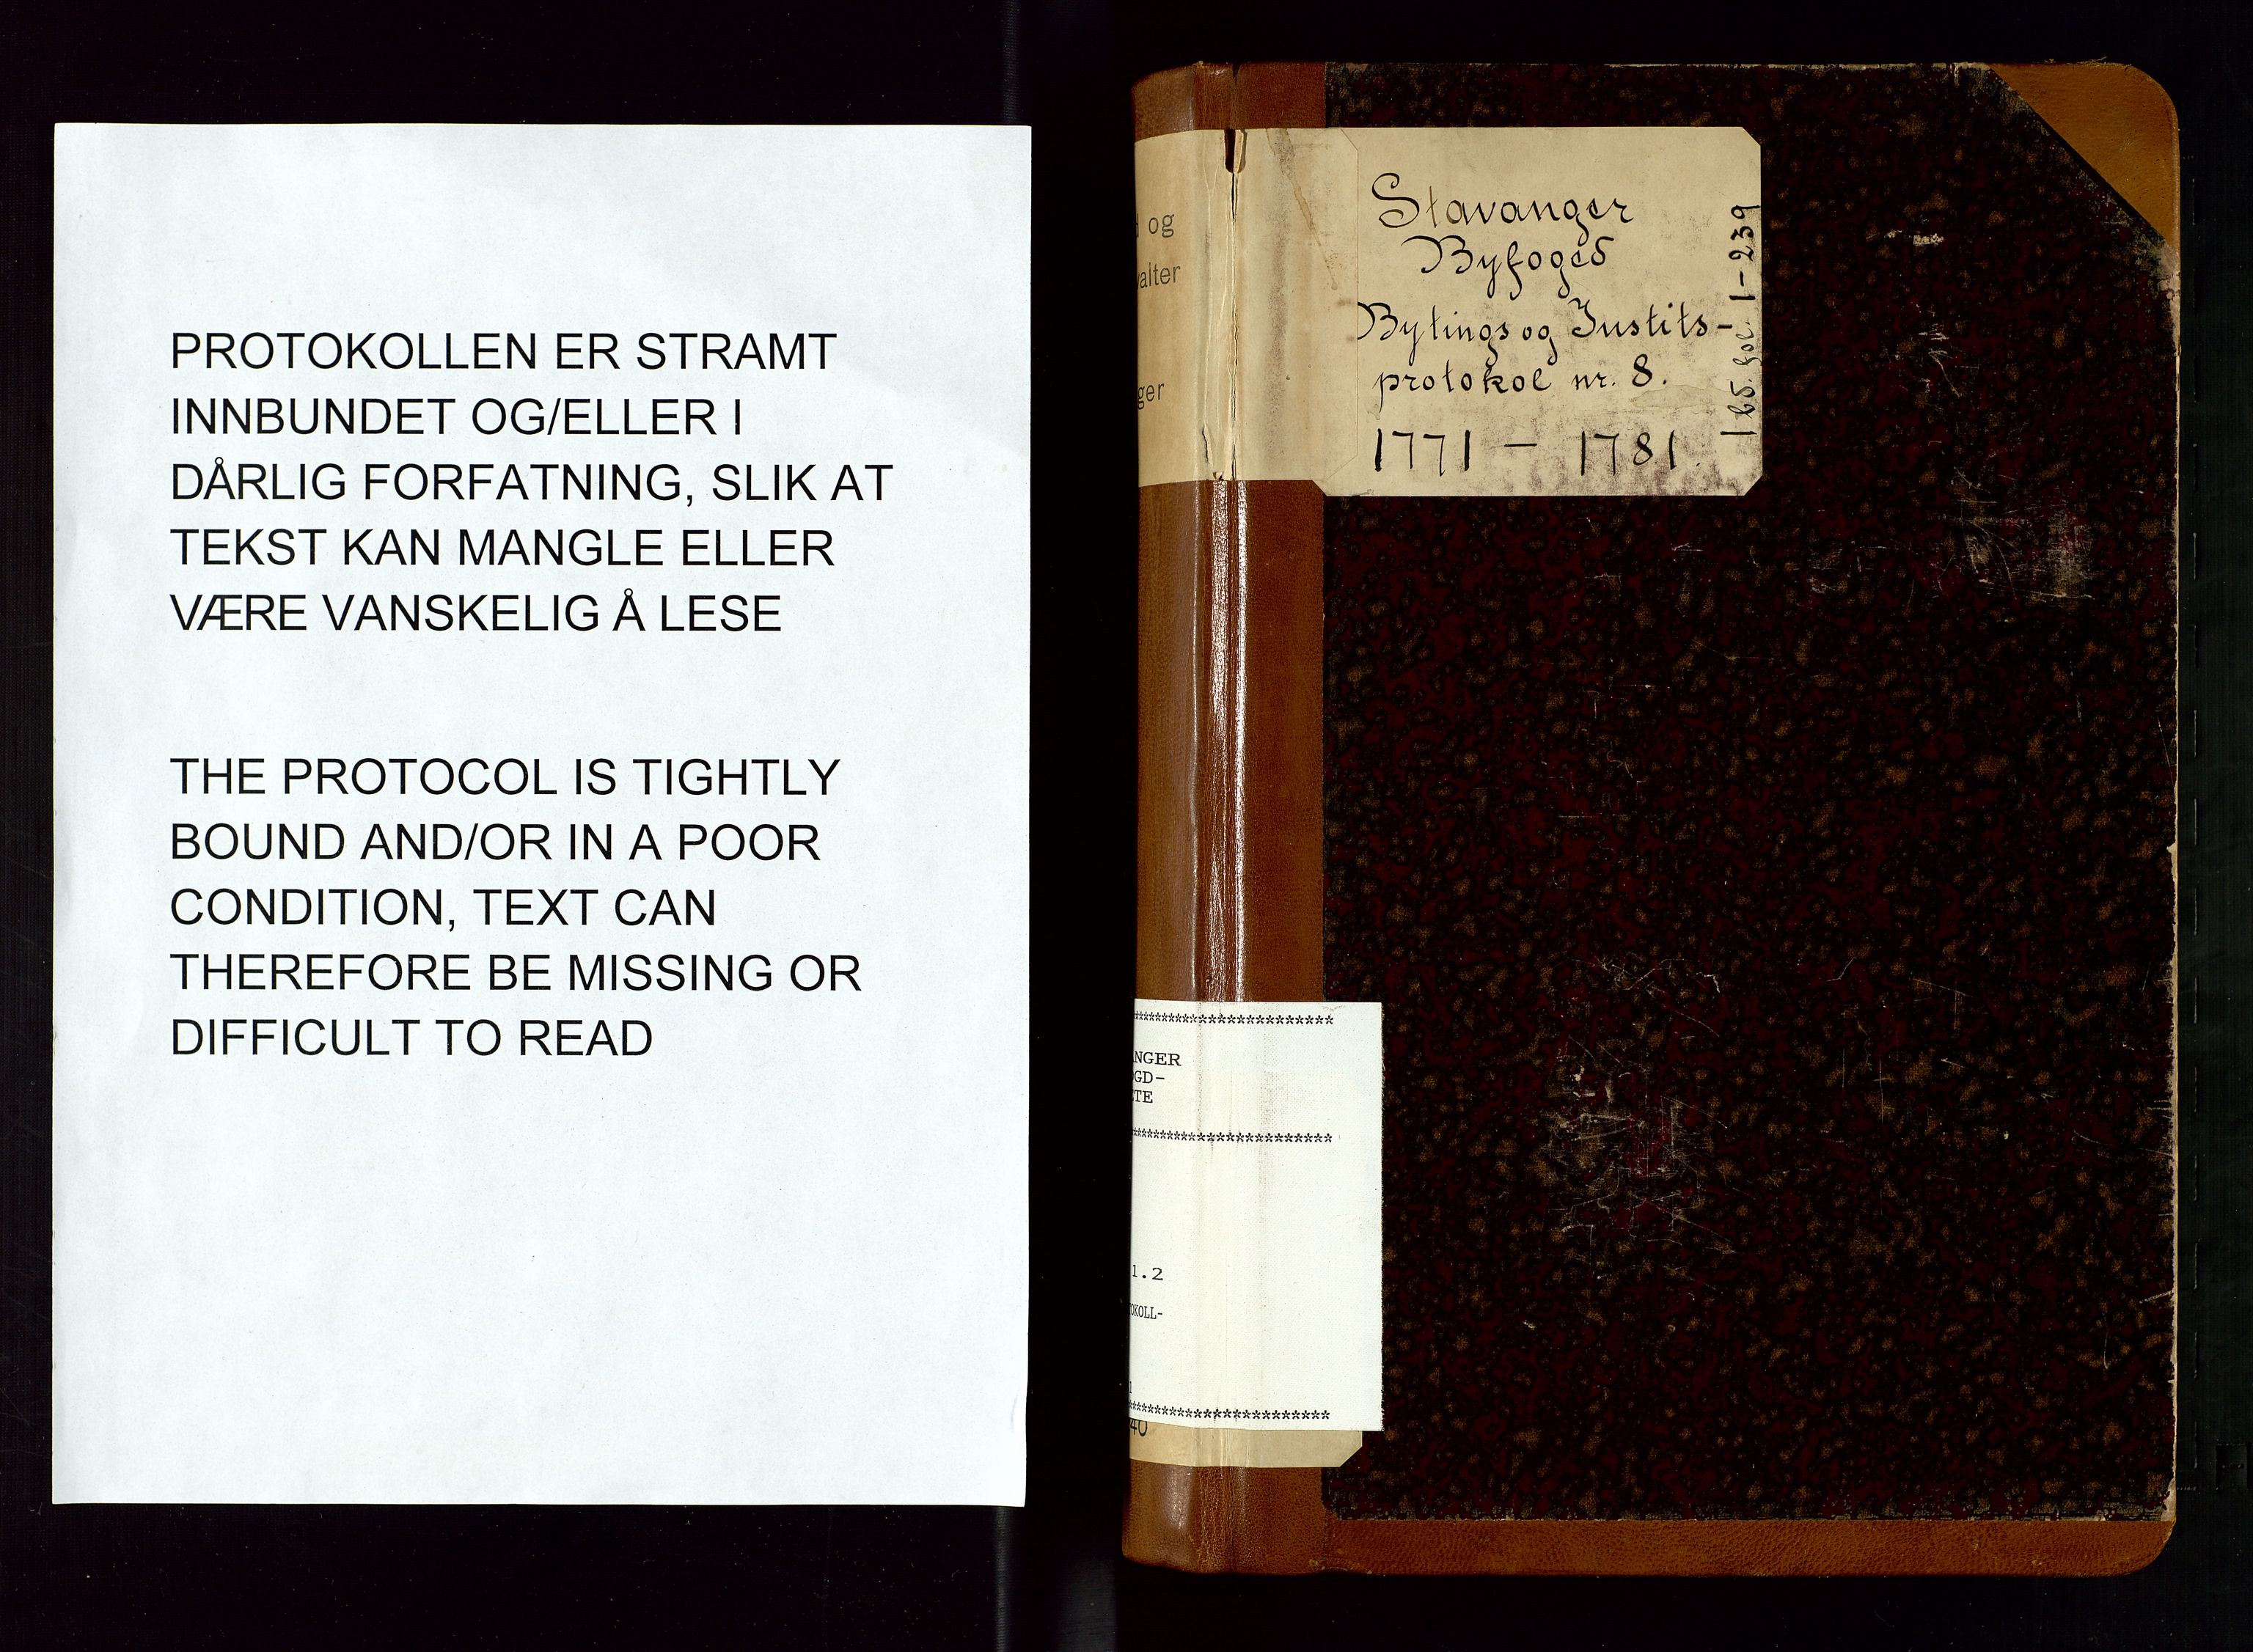 PROTOKOLLEN ER STRAMT
INNBUNDET OG/ELLER I
DÅRLIG FORFATNING, SLIK AT
TEKST KAN MANGLE ELLER
VÆRE VANSKELIG Å LESE
THE PROTOCOL IS TIGHTLY
BOUND AND/OR IN A POOR
CONDITION, TEXT CAN
THEREFORE BE MISSING OR
DIFFICULT TO READ
og
valter
ger
Stavanger
Byfoged
Bytings og Justits-
protokol nr. 8.
1771 - 1781.
fol. 1-239
*************************
ANGER
OGD-
ETE
*************************
1.2
OKOLL-
1
*************************
40